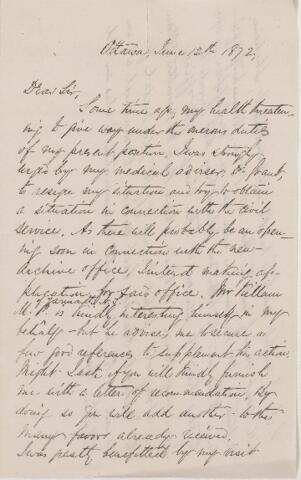 Ottawa, June 12th 1872,
Dear Sir,
Some time ago, my health threaten-
ing to give way under the onerous duties
of my present position, I was strongly
urged by my medical adviser, Dr. Grant,
to resign my situation and try to obtain
a situation in connection with the civil
service. As there will probably be an open-
ing soon in connection with the new
Archive office, I intend making ap-
plication for said office. Mr William
M.P. is kindly interesting himself in my
behalf - but he advises me to secure a
few good references to supplement his action.
Might I ask if you will kindly furnish
me with a letter of recommendation. By
doing so you will add another to the
many favors already received.
I was greatly benefitted by my visit